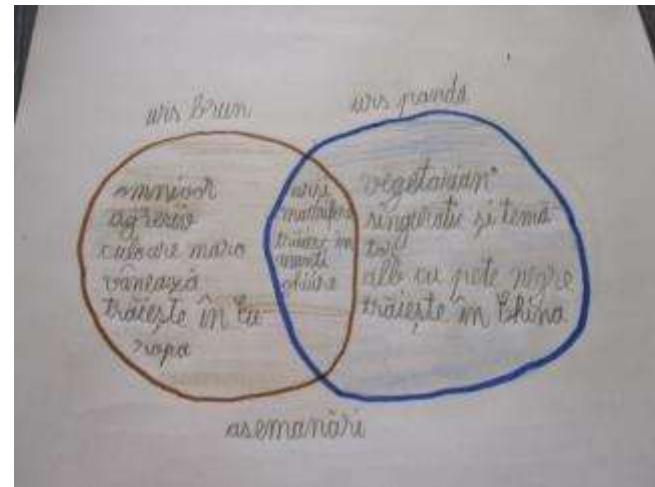 urs brun
urs panda
omnivor
agresiv
culoare maro
vânează
trăiește în Eu
ropa
urs
mamifere
trăiesc în
munți
ghiare
vegetarian
singuratic și temă
tor
alb cu pete negre
trăiește în China
asemanări